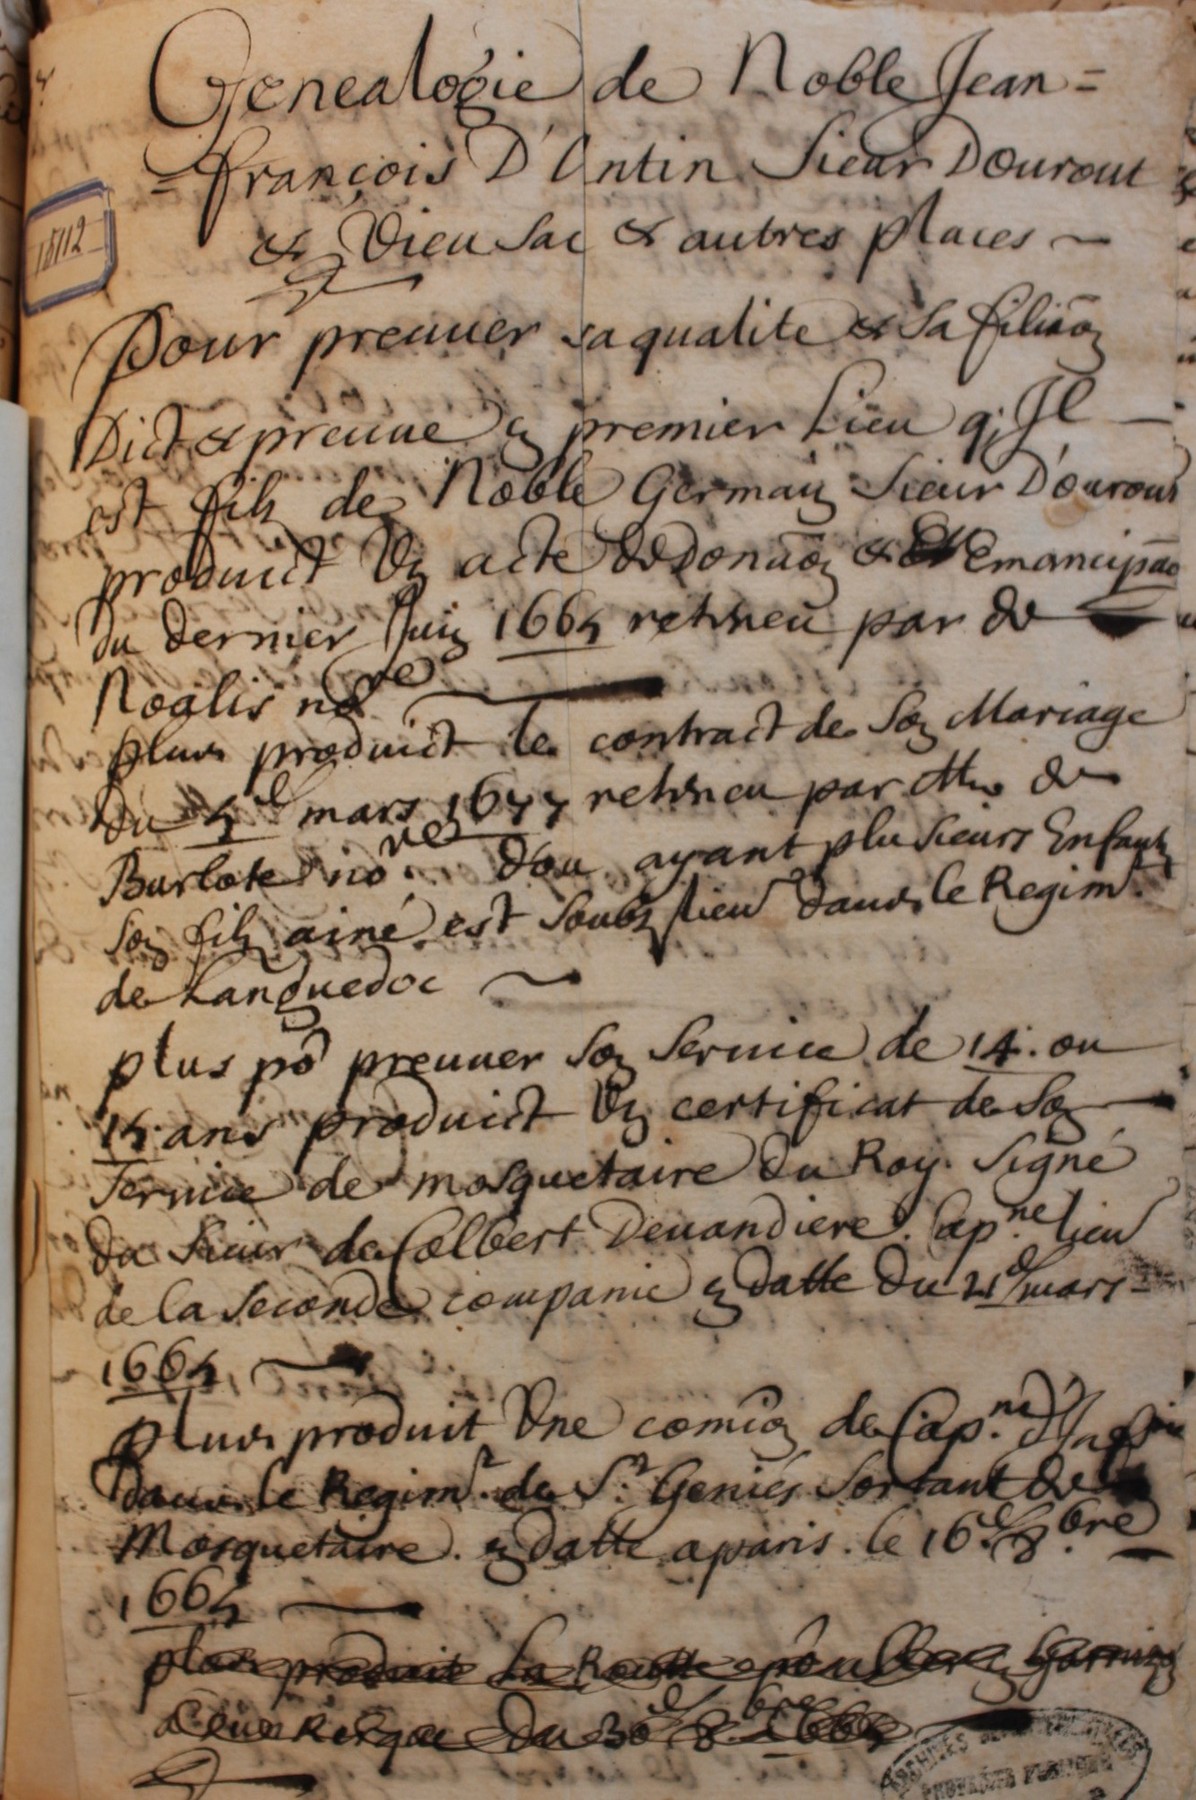 Genealogie de Noble Jean=
=françois D'Antin Sieur Dourout
& Vieusac & autres places
18112
Pour preuuer sa qualite & sa filiaõn
Dict & preuue en premier Lieu q; Il
est filz de Noble Germain Sieur D'ourout
produict Un acte de donaõn & Emancipaõn
du dernier Juin 1665 retneu par de
Noalis no.re
plus produict le contract de son Mariage
du 5.e mars 1677 retneu par M.e de
Burlote no.re d'ou ayant plusieurs Enfants
son filz ainé est soubz lieu.t dans le Regim.t
de Languedoc
plus po.r preuuer son seruice de 14. ou
15. ans produict Un certificat de son
seruice de mosquetaire du Roy. signé
du sieur de Colbert Deuandiere. Cap.ne lieu.t
de la seconde companie en datte du 21.e mars=
1665
plus produit Une comiõn de Cap.ne d'Inf.rie
dans le Regim.t de S.t Geniés sortant de
Mosquetaire. en datte a paris. le 16.e 8.bre
1665
plus produit la Routte po.r aller en Garnizon
a Dunkerque du 30.e 8.bre 1665
ARCHIVES DEPARTEMENTALES
PROPRIÉTÉ PUBLIQUE